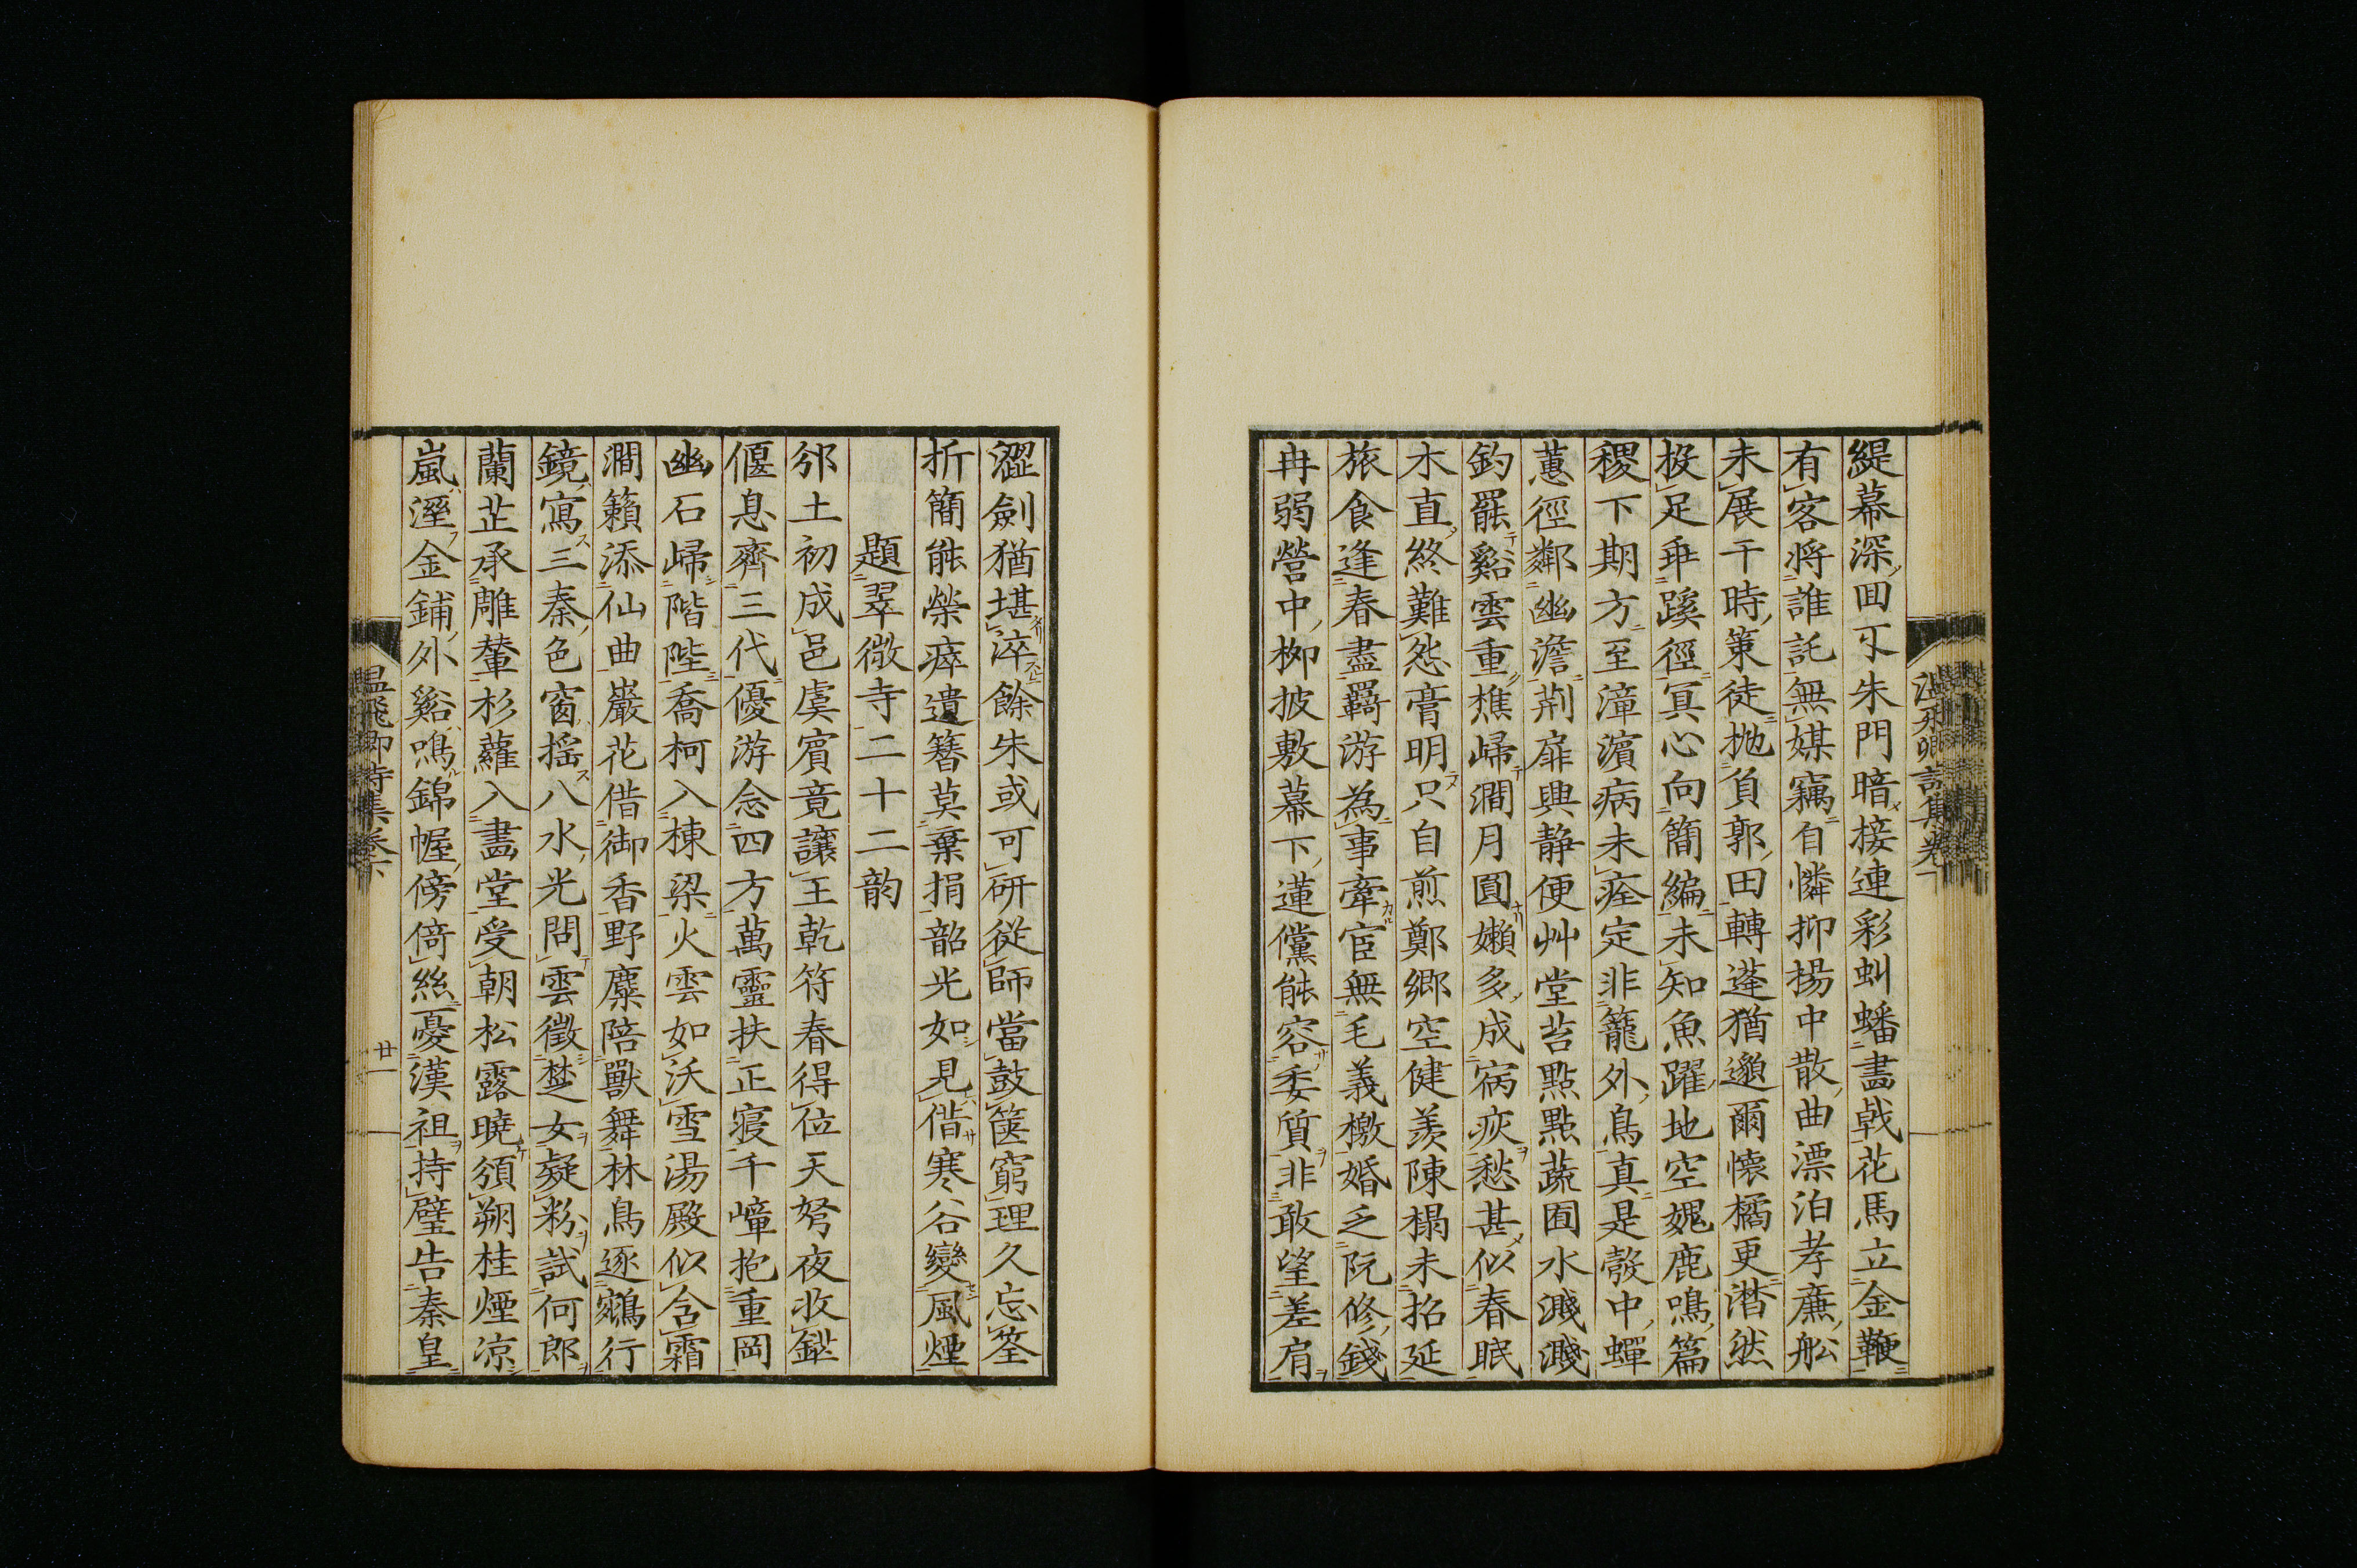 緹幕深回互朱門暗接連彩虯蟠畫戟花馬立金鞭
有客將誰託無媒竊自憐抑揚中散曲漂泊孝廉舩
未展干時策徒抛負郭田轉蓬猶邈爾懷橘更潸然
投足乖蹊徑冥心向簡編未知魚躍地空媿鹿鳴篇
稷下期方至漳濱病未痊定非籠外鳥真是殻中蟬
蕙徑鄰幽澹荆扉興静便艸堂苔點點蔬囿水濺濺
釣罷谿雲重樵歸澗月圓嬾多成病疢愁甚似春眠
木直終難怨膏明只自煎鄭鄉空健羨陳榻未招延
旅食逢春盡羇游為事牽宦無毛義檄婚乏阮修錢
冉弱營中柳披敷幕下蓮儻能容委質非敢望差肩
澀劍猶堪淬餘朱或可研從師當鼓篋窮理久忘筌
折簡能榮瘁遺簪莫棄捐韶光如見借寒谷變風煙
題翠微寺二十二韵
邠土初成邑虞賓竟讓王乾符春得位天弩夜收鋩
偃息齊三代優游念四方萬靈扶正寢千嶂抱重岡
幽石歸階陛喬柯入棟梁火雲如沃雪湯殿似含霜
澗籟添仙曲巖花借御香野麋陪獸舞林鳥逐鵷行
鏡寫三秦色窗摇八水光問雲徵楚女疑粉試何郎
蘭芷承雕輦杉蘿入畫堂受朝松露曉頒朔桂煙凉
嵐溼金鋪外谿鳴錦幄傍倚絲憂漢祖持璧告秦皇
温飛卿詩集卷下
廿一